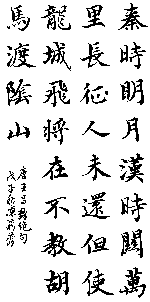 秦時明月漢時關萬
里長征人未還但使
龍城飛將在不教胡
馬渡陰山
唐王昌齡絕句
戊子秋